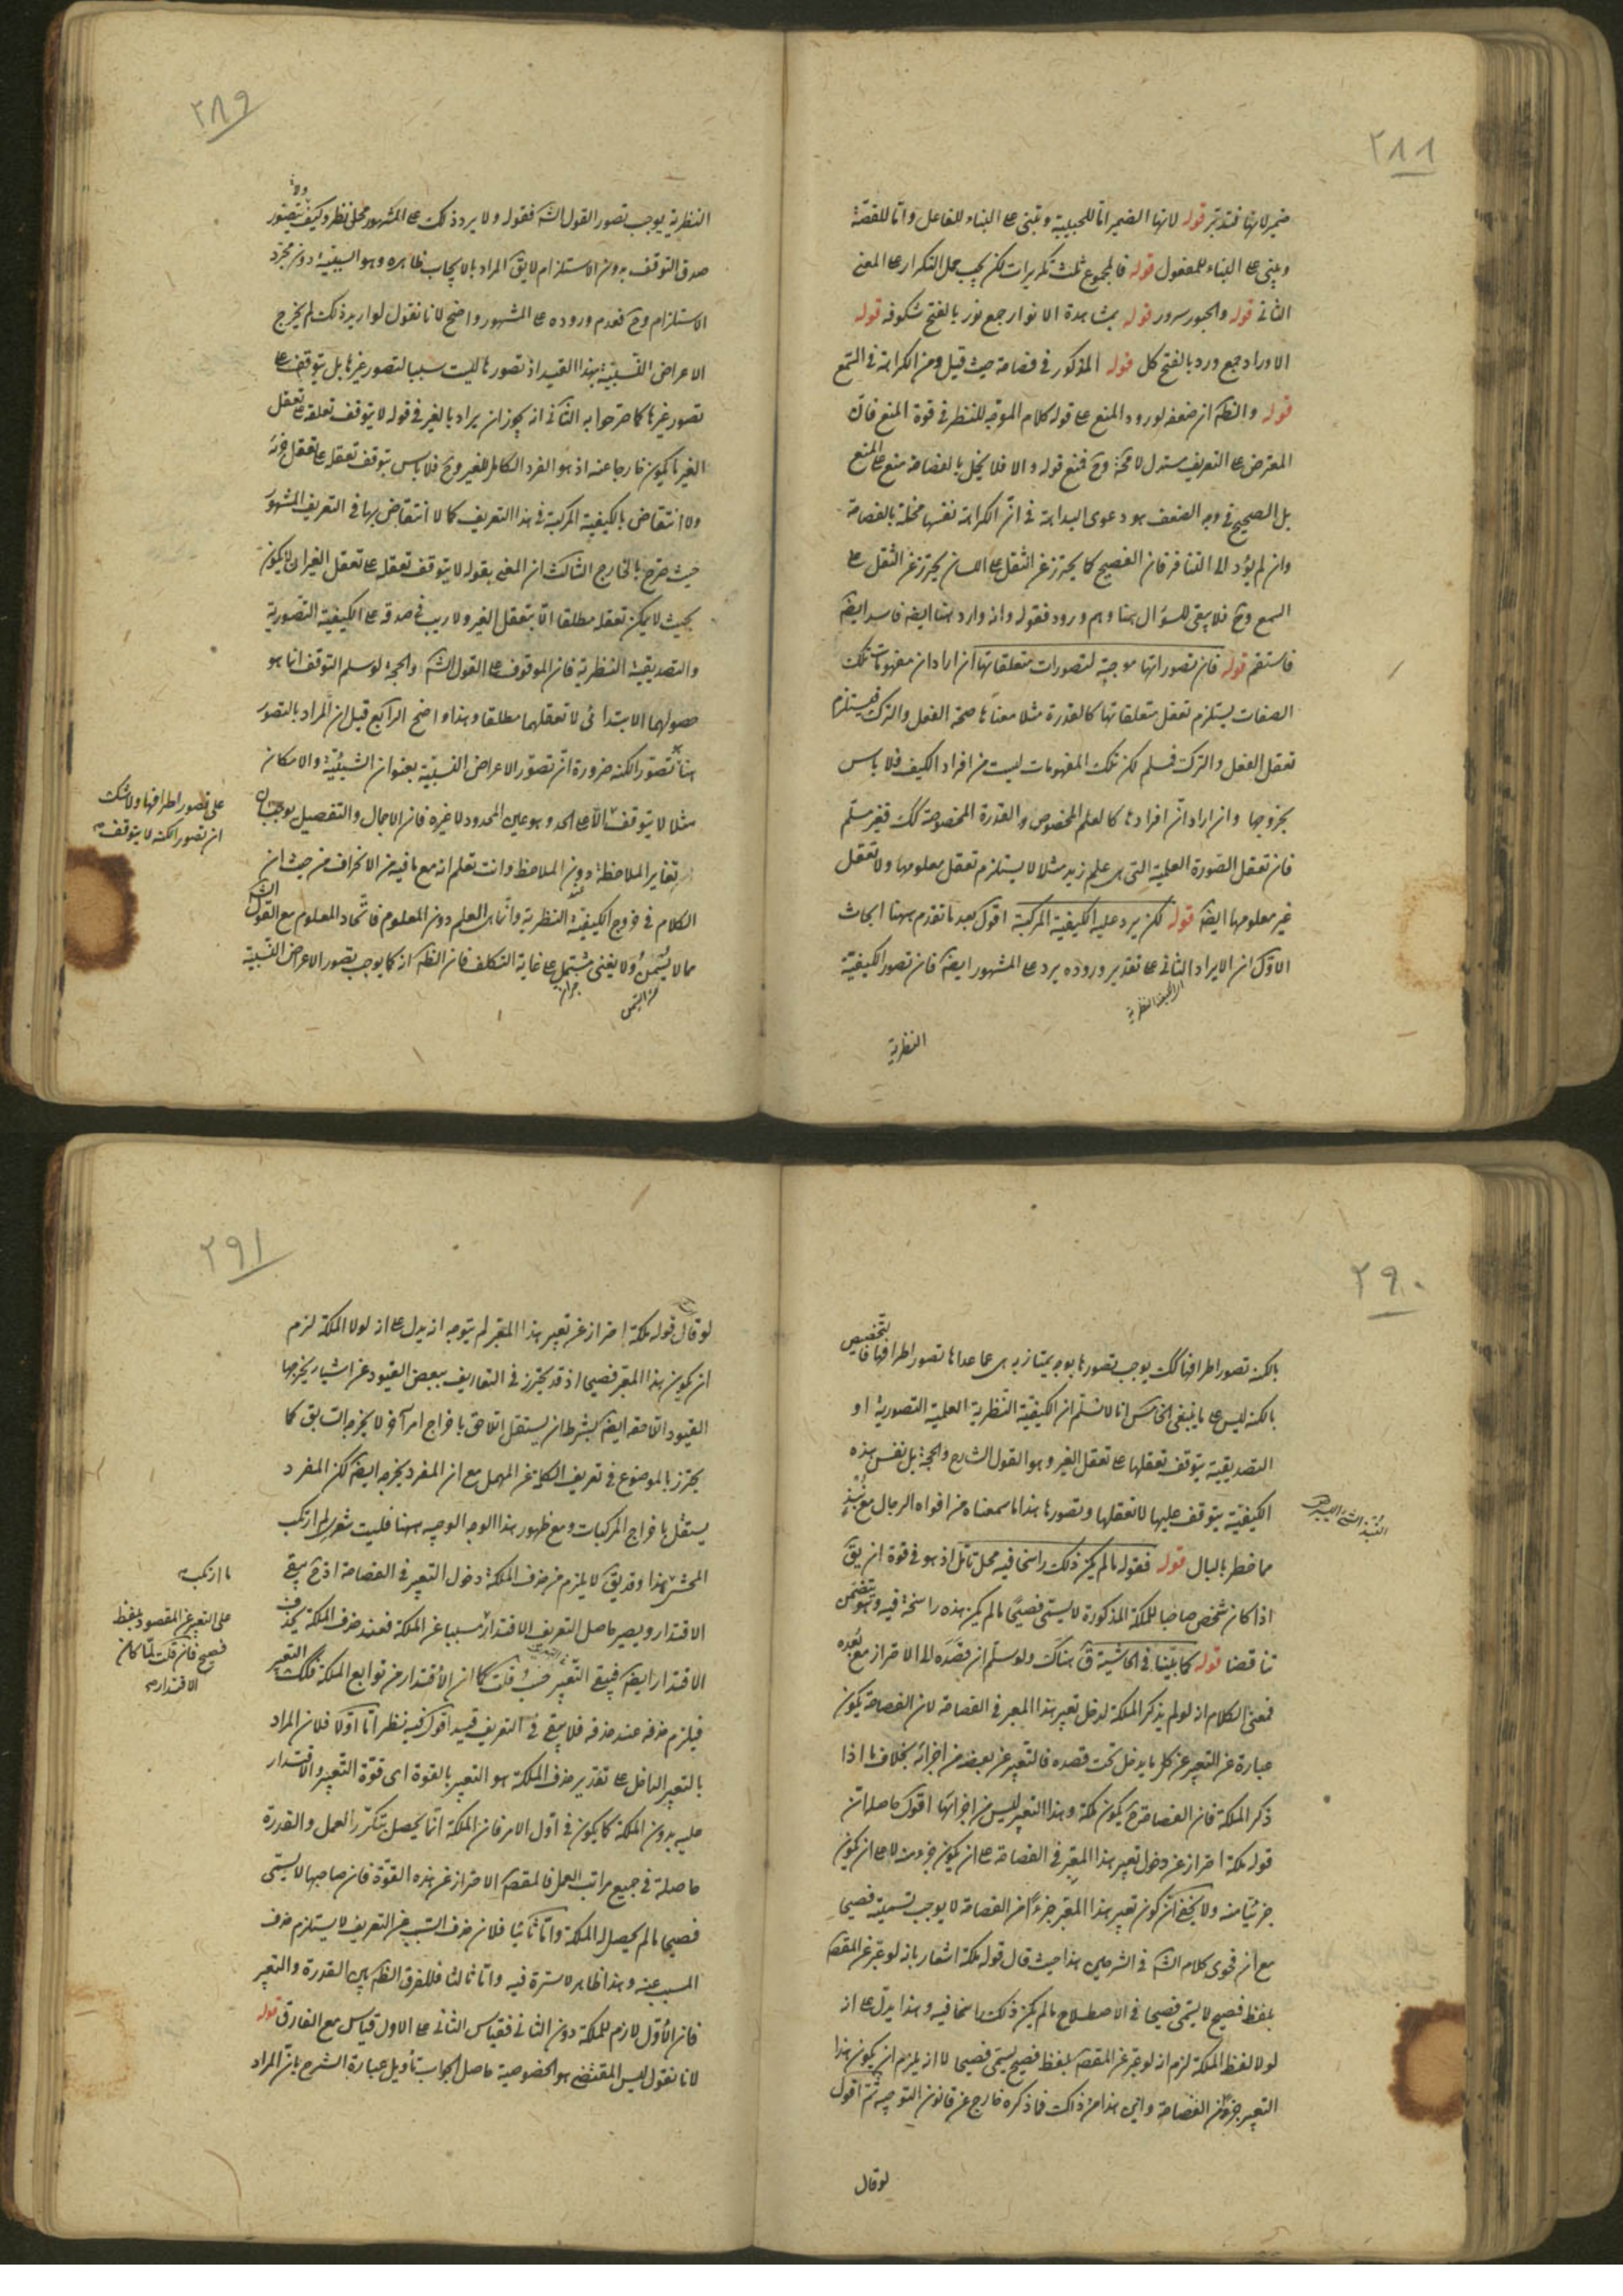 ٢٨٨
ضميرلانها فتدبر قوله لانها الضمير اما للجبيلية و تبنى على البناء للفاعل واما للقصة
ويبنى على البناء للمفعول قوله فالمجموع ثلث تكريرات لكن يجب حمل التكرار على المعنى
الثانى قوله والحبور سرور قوله بمشاهدة الانوار جمع نور بالفتح شكوفه قوله
الاوراد جمع ورد بالفتح كل قوله المذكور فى فصاحة حيث قيل ومن الكراهة فى السمع
قوله والنظم ان ضعفه لورود المنع على قوله كلام الموجه للنظر فى قوة المنع فان
المعترض على التعريف مستدل لا محة وح فمنع قوله والا فلا يخل بالفصاحة منع على المنع
بل الصحيح فى وجه الضعف هو دعوى البداهة فى ان الكراهة نفسها مخلة بالفصاحة
وان لم يؤد الى التنافر فان الفصيح كما يحترز عن الثقل على اللسان يحترز عن الثقل على
السمع وح فلا يبقى للسؤال هنا وهم ورود فقوله وانه وارد هنا ايضا فاسد ايضا
فاستقم قوله فان تصوراتها موجبة لتصورات متعلقاتها ان اراد ان مفهومات تلك
الصفات يستلزم تعقل متعلقاتها كالقدرة مثلا معناها صحة الفعل والترك فيستلزم
تعقل الفعل والترك فمسلم لكن تلك المفهومات ليست من افراد الكيف فلا باس
بخروجها وان اراد ان افرادها كالعلم المخصوص والقدرة المخصوصة كك فغير مسلم
فان تعقل الصورة العلمية التى هى علم زيد مثلا لا يستلزم تعقل معلومها ولا تعقل
غير معلومها ايضا قوله لكن يرد عليه الكيفية المركبة اقول بعد ما تقدم ههنا ابحاث
الاول ان الايراد الثانى على تقدير وروده يرد على المشهور ايضا فان تصور الكيفية
النظرية
٢٨٩
النظرية يوجب تصور القول الشا فقوله ولا يرد ذلك على المشهور محل نظر وكيف يتصور
صدق التوقف بدون الاستلزام لا يق المراد بالايجاب ظاهره وهو السببية دون مجرد
الاستلزام وح فعدم وروده على المشهور واضح لانا نقول لو اريد ذلك لم يخرج
الاعراض النسبية بهذا القيد اذ تصورها ليست سببا لتصور غيرها بل يتوقف على
تصور غيرها كما صرحوا به الثانى انه يجوز ان يراد بالغير فى قوله لا يتوقف تعلقه على تعقل
الغير ما يكون خارجا عنه اذ هو الفرد الكامل للغير وح فلا باس بتوقف تعقله على تعقل جزئه
ولا انتقاض بالكيفية المركبة فى هذا التعريف كما لا انتقاض بها فى التعريف المشهور
حيث صرح بالخارج الثالث ان المعنى بقوله لا يتوقف تعقله على تعقل الغير ان لا يكون
بحيث لا يمكن تعقله مطلقا الا بتعقل الغير ولا ريب فى صدقه على الكيفية التصورية
والتصديقية النظرية فان الموقوف على القول الشا والحجة لو سلم التوقف انما هو
حصولهما الابتدائى لا تعقلهما مطلقا وهذا واضح الرابع قيل ان المراد بالتصور
هنا تصور الكنه ضرورة ان تصور الاعراض النسبية بعنوان الشيئية والامكان
مثلا لا يتوقف الا على الحد وهو عين المحدود لا غيره فان الاجمال والتفصيل يوجبان
تغاير الملاحظة دون الملاحظ وانت تعلم انه مع ما فيه من الانحراف من حيث ان
الكلام فى خروج الكيفية النظرية وانما هى العلم دون المعلوم فاتحاد المعلوم مع القول الشا
مما لا يسمن ولا يغنى مشتمل على غاية التكلف فان النظم انه كما يوجب تصور الاعراض النسبية
على تصور اطرافها ولا شك
ان تصور الكنه لا يتوقف صح
٢٩٠
بالكنه تصور اطرافها كك يوجب تصورها بوجه يمتاز به هى عما عداها تصور اطرافها فالتخصيص
بالكنه ليس على ما ينبغى الخامس انا لا نسلم ان الكيفية النظرية العلمية التصورية او
التصديقية يتوقف تعقلها على تعقل الغير وهو القول الشارح والحجة بل نفس هذه
الكيفية يتوقف عليها لا تعقلها وتصورها هذا ما سمعناه من افواه الرجال مع نبذ
مما خطر بالبال قوله فقوله ما لم يكن ذلك راسخا فيه محل تأمل اذ هو فى قوة ان يق
اذا كان شخص صاحبا للملكة المذكورة لا يسمى فصيحا ما لم يكن هذه راسخة فيه وهو يتضمن
تناقضا قوله كما بينا فى الحاشية ق هناك ولو سلم ان قصده الى الاحتراز مع بعده
فمعنى الكلام انه لو لم يذكر الملكة لدخل تعبير هذا المعبر فى الفصاحة لان الفصاحة يكون
عبارة عن التعبير عن كل ما يدخل تحت قصده فالتعبير عن بعضه من اجزائه بخلاف ما اذا
ذكر الملكة فان الفصاحة ح يكون ملكة وهذا التعبير ليس من اجزائها اقول حاصله ان
قوله ملكة احتراز عن دخول تعبير هذا المعبر فى الفصاحة على ان يكون جزء منه لا على ان يكون
جزئيا منه ولا يخفى ان كون تعبير هذا المعبر جزءا من الفصاحة لا يوجب تسمية فصيحا
مع ان فحوى كلام الشا فى الشرحين هذا حيث قال قوله ملكة اشعار بانه لو عبر عن المقصود
بلفظ فصيح لا يسمى فصيحا فى الاصطلاح ما لم يكن ذلك راسخا فيه وهذا يدل على انه
لولا لفظ الملكة لزم انه لو عبر عن المقصود بلفظ فصيح يسمى فصيحا لا انه يلزم ان يكون هذا
التعبير جزء من الفصاحة واين هذا من ذاك فما ذكره خارج عن قانون التوجيه ثم اقول
لو قال
٢٩١
لو قال قوله ملكة احتراز عن تعبير هذا المعبر لم يتوجه انه يدل على انه لولا الملكة لزم
ان يكون هذا المعبر فصيحا اذ قد يحترز فى التعاريف ببعض القيود عن اشياء يخرجها
القيود اللاحقة ايضا بشرط ان يستقل اللاحق باخراج امر آخر لا يخرجه السابق كما
يحترز بالموضوع فى تعريف الكلمة عن المهمل مع ان المفرد يخرجه ايضا لكن المفرد
يستقل باخراج المركبات ومع ظهور هذا الوجه الوجيه ههنا فليت شعرى لم ارتكب
المحشى هذا وقد يق لا يلزم من حذف الملكة دخول التعبير فى الفصاحة اذ ح يبقى
الاقتدار ويصير حاصل التعريف الاقتدار مسببا عن الملكة فعند حذف الملكة يحذف
الاقتدار ايضا فيبقى التعبير فحسب قلت كما ان الاقتدار من توابع الملكة فكك التعبير
فيلزم حذفه عند حذفه فلا يبقى فى التعريف قيد اقول فيه نظر اما اولا فلان المراد
بالتعبير الداخل على تقدير حذف الملكة هو التعبير بالقوة اى قوة التعبير والاقتدار
عليه بدون الملكة كما يكون فى اول الامر فان الملكة انما يحصل بتكرر العمل والقدرة
حاصلة فى جميع مراتب العمل فالمقصود الاحتراز عن هذه القوة فان صاحبها لا يسمى
فصيحا ما لم يحصل له الملكة واما ثانيا فلان حذف السبب عن التعريف لا يستلزم حذف
المسبب عنه وهذا ظاهر لا سترة فيه واما ثالثا فللفرق الظاهر بين القدرة والتعبير
فان الاول لازم للملكة دون الثانى فقياس الثانى على الاول قياس مع الفارق قوله
لانا نقول ليس المقتضى هو الخصوصية حاصل الجواب تأويل عبارة الشرح بان المراد
ما ارتكبه
على التعبير عن المقصود بلفظ
فصيح فان قلت لما كان
الاقتدار صح